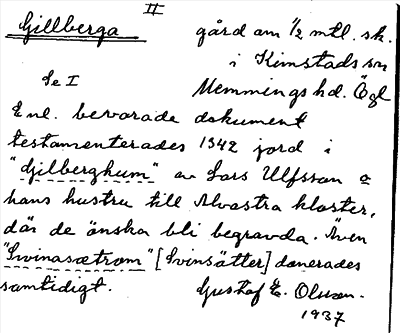 II
Gillberga gård om 1/2 mtl. sk.
i Kimstads sn
Se I Memmings hd. Ögl
Enl. bevarade dokument
testamenterades 1342 jord i
"Gilberghum" av Lars Ulfsson o
hans hustru till Alvastra kloster,
där de önska bli begravda. Även
"Swinasætrom" [Svinsätter] donerades
samtidigt. Gustaf E. Olsson.
1937